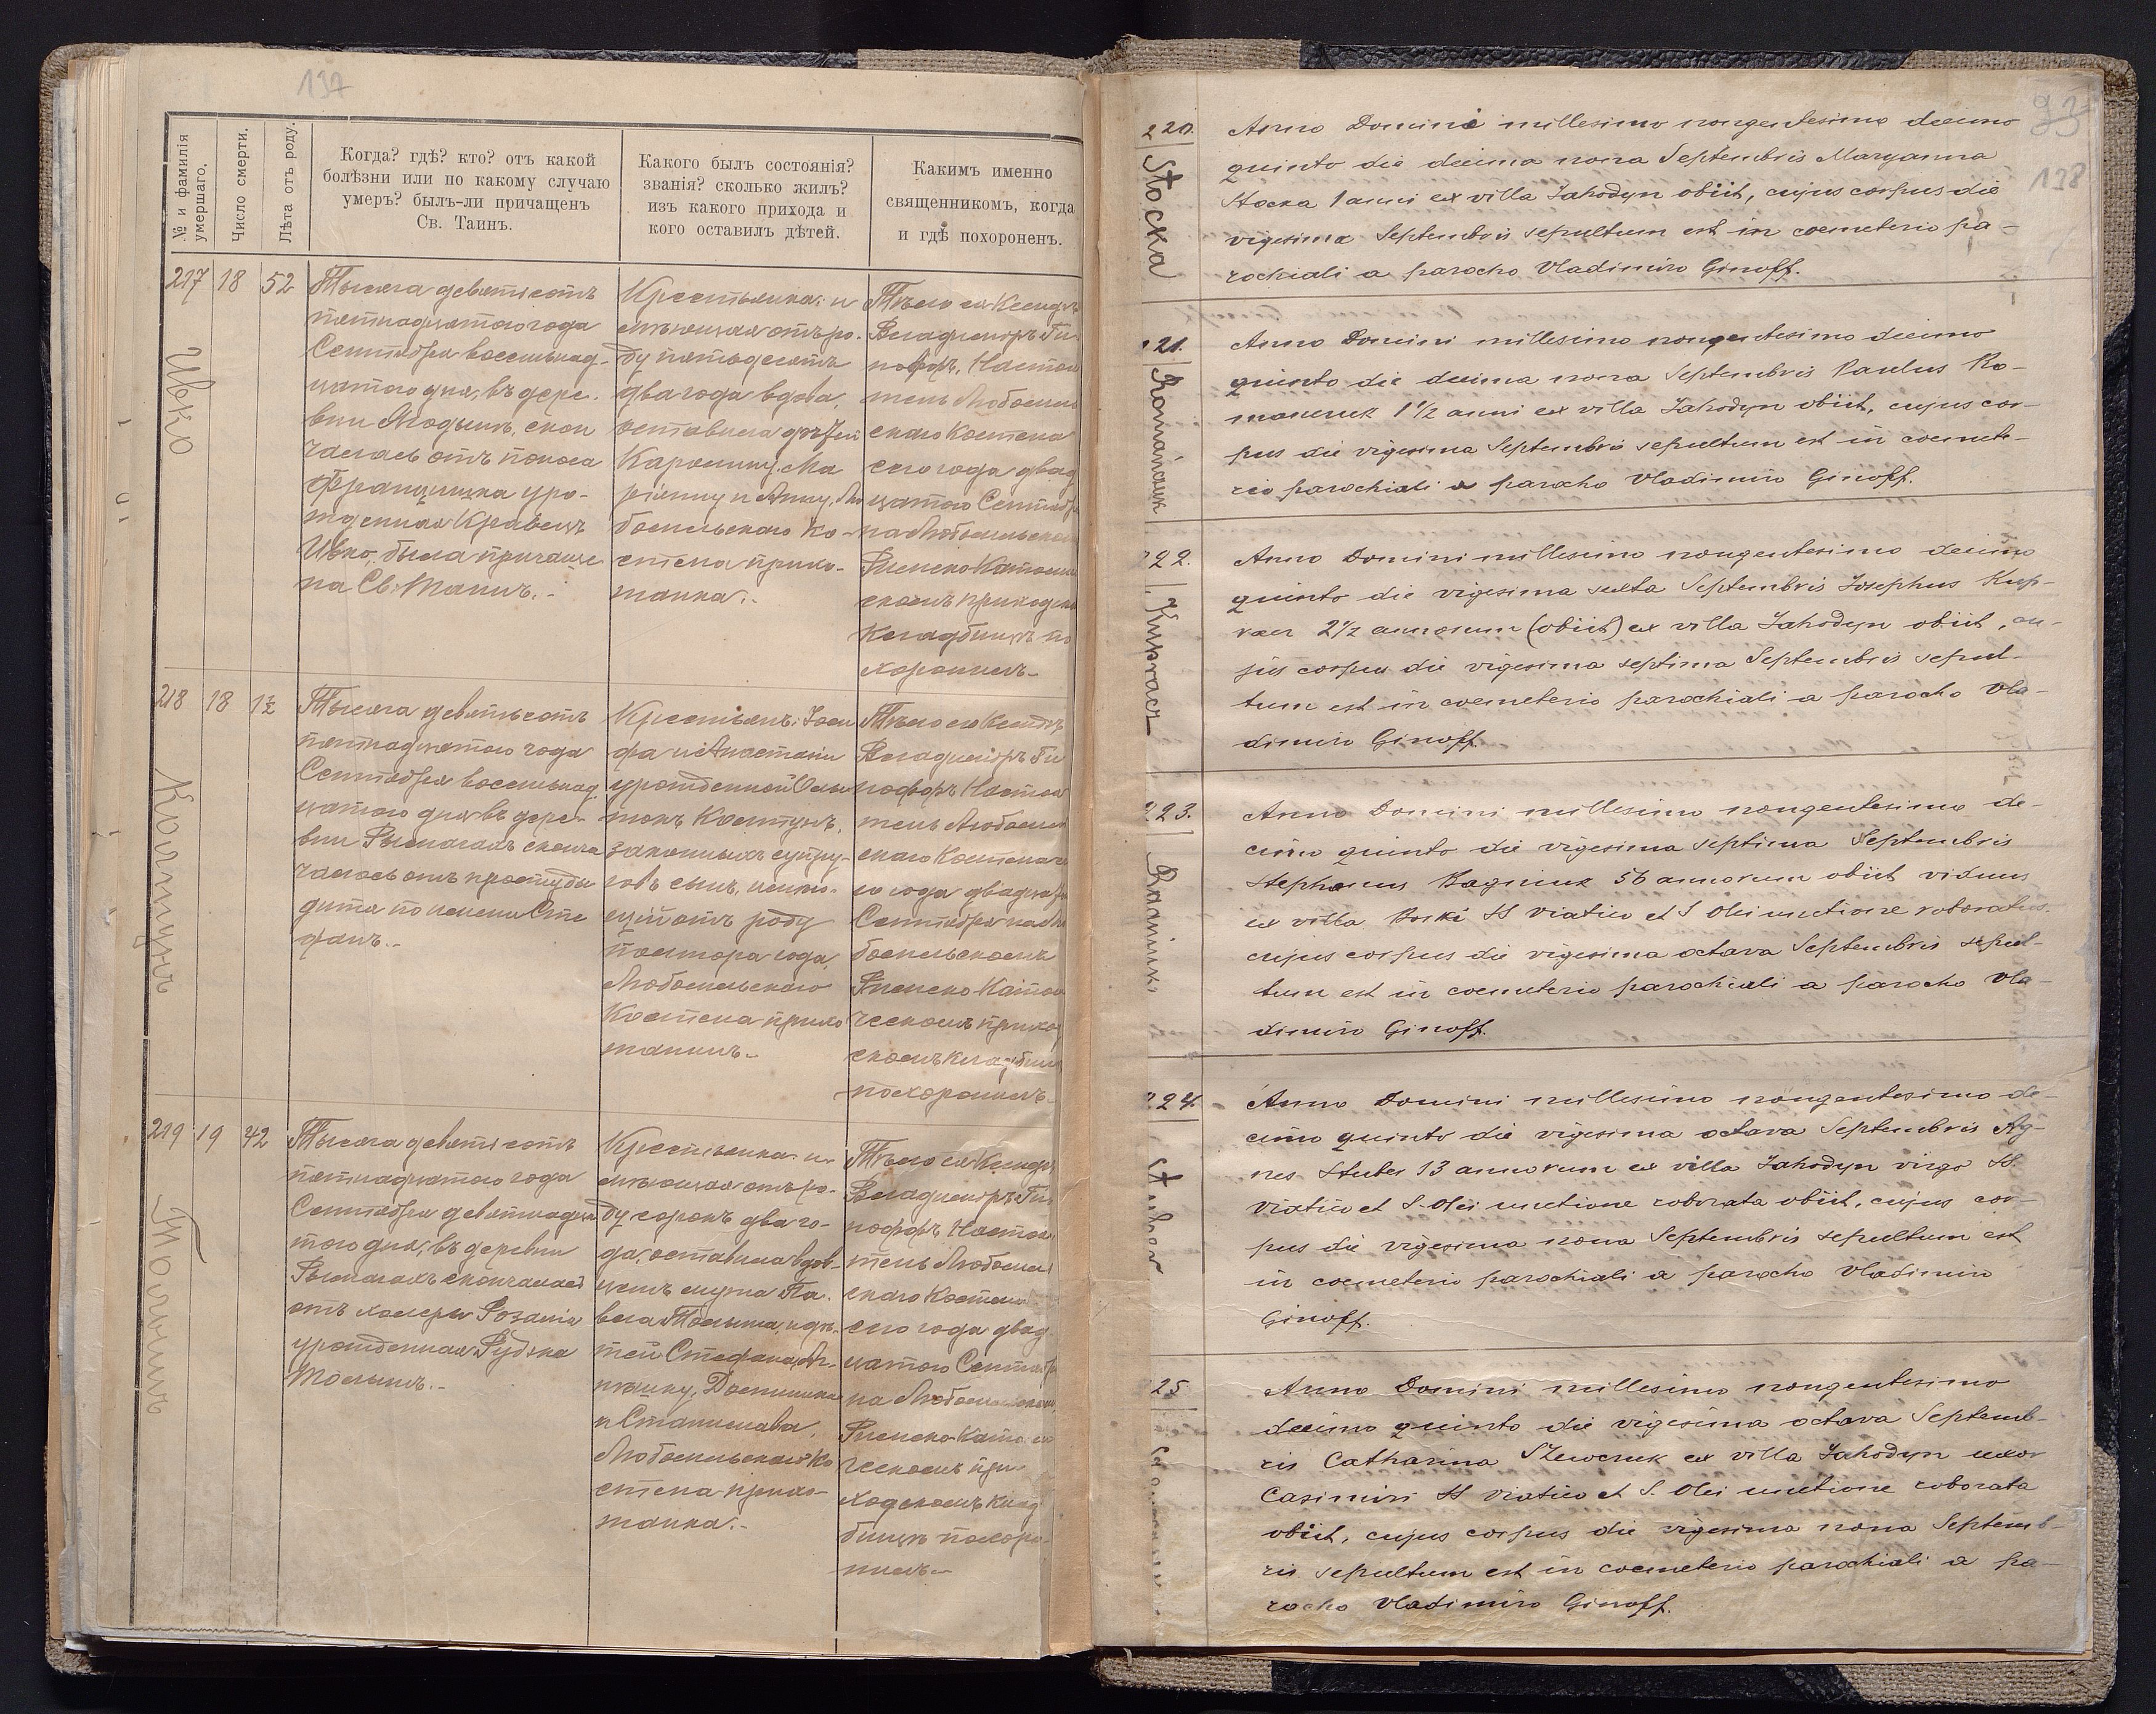 137
№ и фамилія умершаго.
Число смерти.
Лѣта отъ роду.
Когда? гдѣ? кто? отъ какой
болѣзни или по какому случаю
умеръ? былъ-ли причащенъ
Св. Таинъ.
Какого былъ состоянія?
званія? сколько жилъ?
изъ какого прихода и
кого оставилъ дѣтей.
Какимъ именно
священникомъ, когда
и гдѣ похороненъ.
217 18 52
Ивко
Тысяча девятьсотъ
пятнадцатого года
Сентября восемнад-
цатого дня, въ дере-
вни Ягодынъ, скон
чалась отъ поноса
Францишка уро-
жденная Кравецъ
Ивко, была причаще
на Св. Таинъ.-
Крестьянка; и
мѣющая отъ ро-
ду пятьдесятъ
два года вдова,
оставила дѣтей
Каролину, Ма
ріянну и Анну, Лю
бомльскаго Ко-
стела прихо-
жанка.-
Тѣло ея Ксендзъ
Владиміръ Ги
ноффъ, Настоя
тель Любомль
скаго Костела
сего года двад
цатого Сентября
на Любомльском
Римско Католи
скомъ приходском
Кладбищѣ по
хоронилъ.-
218 18 1½
Колтунъ
Тысяча девятьсотъ
пятнадцатого года
Сентября восемнад
цатого дня въ дере-
вни Рымачахъ сконча
лось отъ простуды
дитя по имени Сте
фанъ.-
Крестьянъ: Іоси
фа и Анастасіи
урожденной
Колтунъ,
законныхъ супру-
говъ сынъ, имѣю-
щій отъ роду
полтора года,
Любомльскаго
Костела прихо
жанинъ.-
Тѣло его Ксендзъ
Владиміръ Ги
ноффъ Настоя
тель Любомль
скаго Костела се
го года двадцатого
Сентября на Лю
бомльскомъ
Римско Католи
ческомъ приход
скомъ кладбищѣ
похоронилъ.-
219 19 42
Толынъ
Тысяча девятьсотъ
пятнадцатого года
Сентября девятнадца
того дня, въ деревни
Рымачахъ скончалась
отъ холеры Розалія
урожденная Рудзка
Толынъ.-
Крестьянка; и-
мѣющая отъ ро-
ду сорокъ два го-
да; оставила вдов-
цемъ мужа Па-
вла Толына, и дѣ-
тей Стефана, Аг-
нѣшку,
и Станислава,
Любомльскаго Ко
стела прихо-
жанка.-
Тѣло ея Ксендзъ
Владиміръ Ги
ноффъ Настоя
тель Любомль
скаго Костела
сего года двад
цатого Сентября
на Любомльскомъ
Римско-Католи
ческомъ при-
ходскомъ клад
бищѣ похоро-
нилъ.-
93
138
220. Stocka
Anno Domini millesimo nongentesimo decimo
quinto die decima nona Septembris Maryanna
Stocka 1 anni ex villa Jahodyn obiit, cujus corpus die
vigesima Septembris sepultum est in coemeterio pa-
rochiali a parocho Vladimiro Ginoff.
21. Romańczuk
Anno Domini millesimo nongentesimo decimo
quinto die decima nona Septembris Paulus Ro-
manczuk 1 1/2 anni ex villa Jahodyn obiit, cujus cor-
pus die vigesima Septembris sepultum est in coemete-
rio parochiali a parocho Vladimiro Ginoff.
22. Kupracz
Anno Domini millesimo nongentesimo decimo
quinto die vigesima sexta Septembris Josephus Kup-
racz 2 1/2 annorum (obiit) ex villa Jahodyn obiit, cu-
jus corpus die vigesima septima Septembris sepul-
tum est in coemeterio parochiali a parocho Vla-
dimiro Ginoff.
223.
Anno Domini millesimo nongentesimo de-
cimo quinto die vigesima septima Septembris
Stephanus 56 annorum obiit viduus
ex villa SS Viatico et S Olei unctione roboratus
cujus corpus die vigesima octava Septembris sepul-
tum est in coemeterio parochiali a parocho Vla-
dimiro Ginoff.
224. Stuber
Anno Domini millesimo nongentesimo de-
cimo quinto die vigesima octava Septembris Ag-
nes Stuber 13 annorum ex villa Jahodyn virgo SS.
Viatico et S. Olei unctione roborata obiit, cujus cor-
pus die vigesima nona Septembris sepultum est
in coemeterio parochiali a parocho Vladimiro
Ginoff.
25
Anno Domini millesimo nongentesimo
decimo quinto die vigesima octava Septemb-
ris Catharina Szewczuk ex villa Jahodyn uxor
Casimiri SS Viatico et S. Olei unctione roborata
obiit, cujus corpus die vigesima nona Septemb-
ris sepultum est in coemeterio parochiali a pa-
rocho Vladimiro Ginoff.